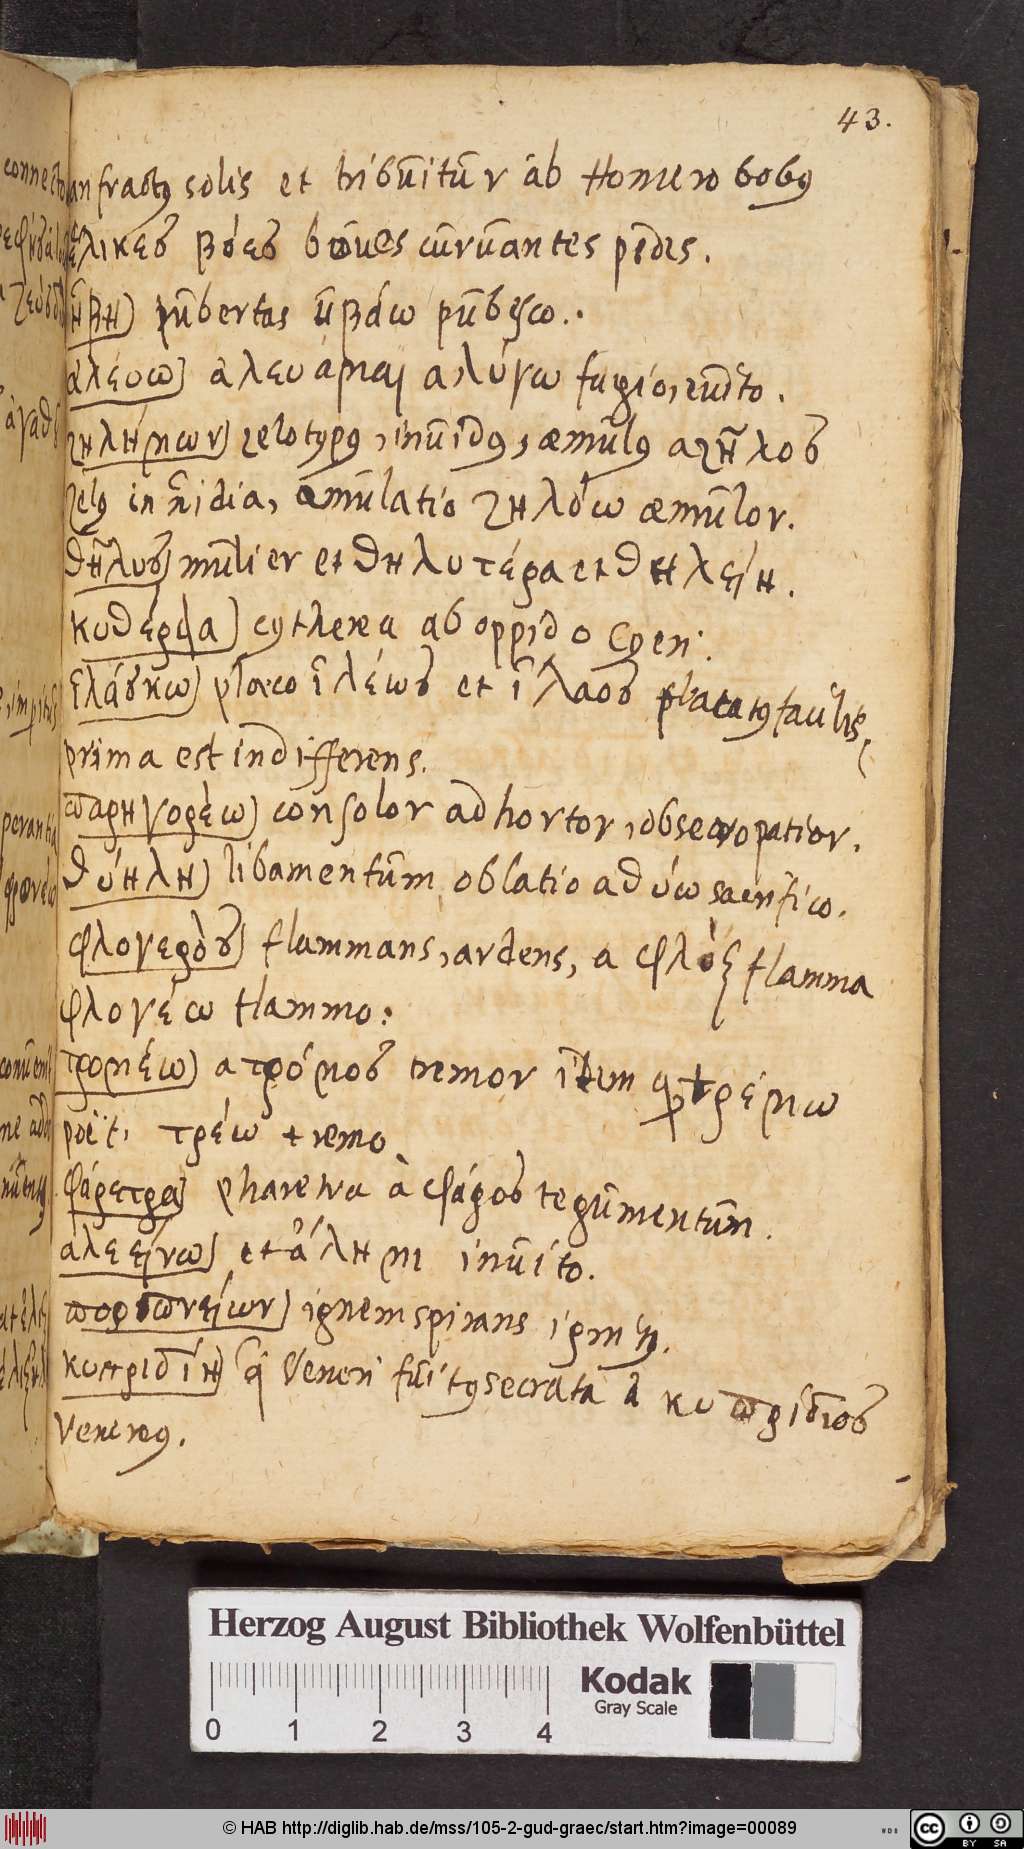 43.
anfractus solis et tribuitur ab Homero bobus
ἕλικες βόες boues curuantes pedes.
ἥβη) pubertas ἡβάω pubesco.
ἀλεύω) ἀλευάμαι ἀλύγω fugio, euito.
ζηλήμων) zelotypus, inuidus, æmulus a ζῆλος
zelus inuidia, æmulatio ζηλόω æmulor.
θῆλυς) mulier et θηλυτέρα et θηλείη.
κυθέρεια) cytherea ab oppido
ἱλάσκω) placo ἱλέως et ἵλαος placatus facilis,
prima est indifferens.
παρηγορέω) consolor adhortor, obsecro patior.
θύηλη) libamentum oblatio a θύω sacrifico.
φλογερὸς) flammans, ardens, a φλόξ flamma
φλογέω flammo:
τρομέω) a τρόμος tremor item τρέμω
poët, τρέω tremo
φάρετρα) pharetra à φάρος tegumentum.
ἀλεείνω) et ἄλημι inuito.
πυριπνείων) ignem spirans igneus.
κυπριδίη) Veneri fuit secrata a κυπρίδιος
Venereus.
Herzog August Bibliothek Wolfenbüttel
Kodak
Gray Scale
0 1 2 3 4
© HAB http://diglib.hab.de/mss/105-2-gud-graec/start.htm?image=00089
WDB
CC BY SA